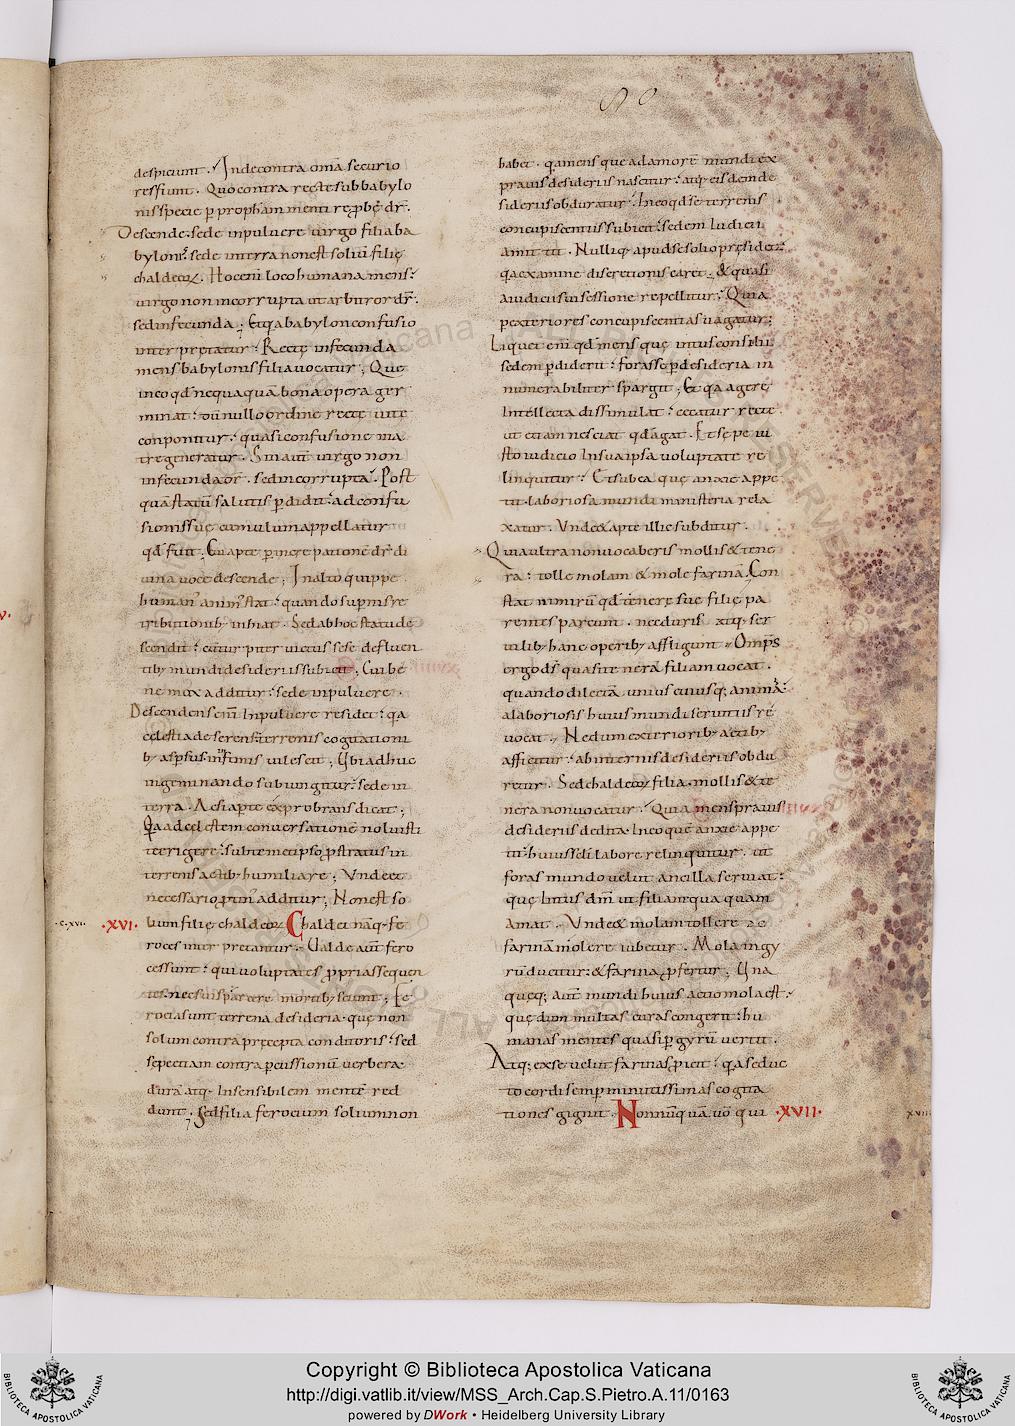 80
despiciunt. Indecontra omã securio
ressiunt. Quo contra recte sub babylo
nis specie p propham menti reprobę dr̃.
Descende. sede in pulvere virgo filia ba
bylonis. sede in terra non est soliũ filię
chaldeoꝝ. Hoc enĩ loco humana mens
virgo non incorrupta ut arbitror dr̃.
sed infecunda; Et qa babylon confusio
inter pretatur. Recte infecunda
mens babylonis filia vocatur; Quę
in eo qd nequaquã bona opera ger
minat: dũ nullo ordine recte vite
conponitur: quasi confusione ma
tre generatur. Sin aut virgo non
infecunda dr̃. sed incorrupta. Post
quã statũ salutis pdidit: ad confu
sionis suę cumulum appellatur
qd fuit; Cui apte p increpationẽ dr̃ di
vina voce descende; In alto quippe
humanꝰ animꝰ stat: quando supnis re
tributionibꝫ inhiat. Sed ab hoc statu de
scendit: cũ turpiter victus sese defluen
tibꝫ mundi desideriis subicit; Cui be
ne mox additur: sede in pulvere.
Descendens enĩ In pulvere residet: qa
cęlestia deserens: terrenis cogitationi
bꝫ aspersus. in infimis vilescit; Ubi adhuc
ingeminando subiungitur: sede in
terra. Ac si apte exprobrans dicat;
Qa ad cęlestem conversationẽ noluisti
te erigere: sub temetipso pstratus in
terrenis actibꝫ humiliare; Unde et
necessario ptinꝰ additur; Non est so
lium filię chaldeoꝝ Chaldei nãq; fe
·c·xvi·
·XVI·
roces inter pretantur. Valde aut fero
ces sunt: qui voluptates pprias sequen
tes. nec suis parcere moribꝫ sciunt; Fe
rocia sunt terrena desideria. quę non
solum contra precepta conditoris: sed
sepe etiam contra pcussionũ verbera
dura atq; Insensibilem mentẽ red
dunt. Sed filia ferocium solium non
habet. qa mens que ad amorẽ mundi ex
pravis desideriis nascitur: atq; eisdem de
sideriis obduratur: In eo qd se terrenis
concupiscentiis subicit: sedem Iudicii
amittit. Nulliq; apud se solio presidet:
qa examine discretionis caret; & quasi
a iudicii sui sessione repellitur: Quia
p exteriores concupiscentias vagatur;
Liquet enĩ qd mens quę intus consilii
sedem pdiderit: foras se p desideria in
numerabiliter spargit; Et qa agere
Intellecta dissimulat: cęcatur recte
ut etiam nesciat qd agat. Et sępe iu
sto iudicio In sua ipsa voluptate re
linquitur: Et sub ea quę anxie appe
tit. laboriosa mundi ministeria rela
xatur. Unde & apte illic subditur.
Quia ultra non vocaberis mollis & tene
ra: tolle molam & mole farinã. Con
stat nimirũ qd tenerę suę filię pa
rentes parcunt. nec duris atq; ser
vilibꝫ hanc operibꝫ affligunt; Omps
ergo ds quasi tenerã filiam vocat.
quando dilectã unius cuiusq; animã
a laboriosis huius mundi servitiis re
vocat; Ne dum exterioribꝫ actibꝫ
afficitur: ab internis desideriis obdu
retur. Sed chaldeoꝝ filia. mollis & te
nera non vocatur. Quia mens pravis
desideriis dedita. In eo que anxie appe
tit: huius sęcli labore relinquitur. ut
foras mundo velut ancilla serviat:
quę Intus dm ut filia nequaquam
amat. Unde & molam tollere &
farinã molere iubetur. Mola in gy
rũ ducitur: & farina pfertur; Una
queq; aut mundi huius actio mola est.
quę dum multas curas congerit: hu
manas mentes quasi p gyrũ vertit.
Atq; ex se velut farinas picit: qa seduc
to cordi semp minutissimas cogita
tiones gignit. Nonnũquã vo qui ·XVII·
xvii
Copyright © Biblioteca Apostolica Vaticana
http://digi.vatlib.it/view/MSS_Arch.Cap.S.Pietro.A.11/0163
powered by DWork • Heidelberg University Library
BIBLIOTECA APOSTOLICA VATICANA
BIBLIOTECA APOSTOLICA VATICANA